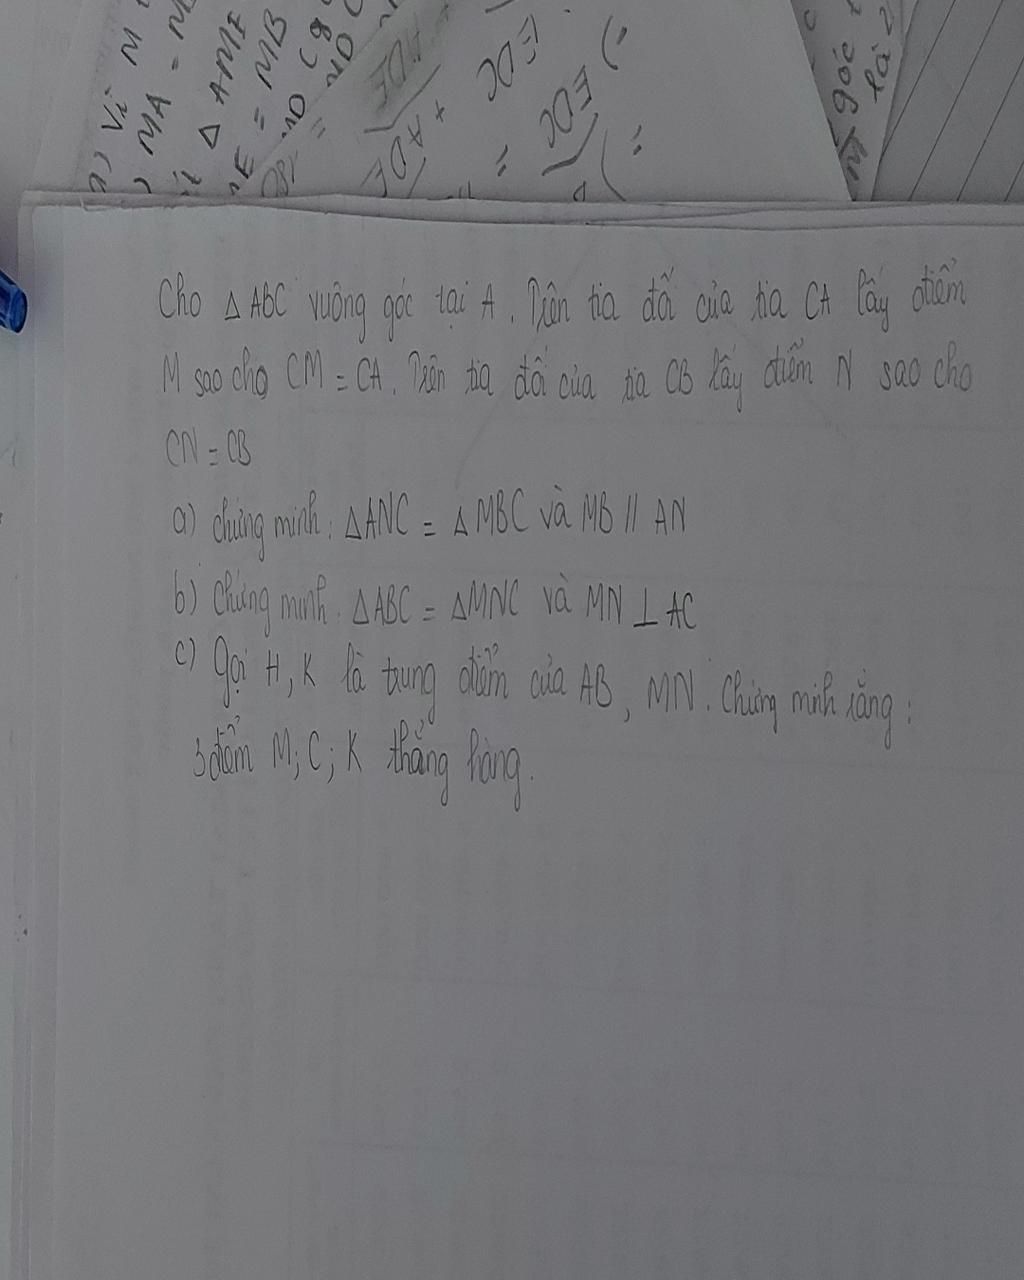 a) Vì M
MA = M
Δ AME
E = MB
ND (g
= ND
ADE
ADE +
EDC
= EDC
=
góc
là 2
Cho Δ ABC vuông góc tại A. Trên tia đối của tia CA lấy điểm
M sao cho CM = CA. Trên tia đối của tia CB lấy điểm N sao cho
CN = CB
a) chứng minh: ΔANC = ΔMBC và MB // AN
b) Chứng minh: ΔABC = ΔMNC và MN ⊥ AC
c) Gọi H, K là trung điểm của AB, MN. Chứng minh rằng:
3 điểm M; C; K thẳng hàng.